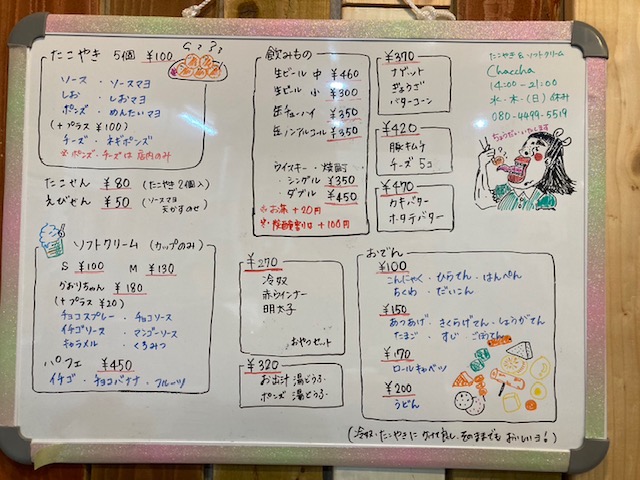 たこやき 5個 ¥100
ソース ・ ソースマヨ
しお ・ しおマヨ
ポンズ ・ めんたいマヨ
(+プラス ¥100)
チーズ ・ ネギポンズ
※ポンズ・チーズは店内のみ
たこせん ¥80 (たこやき2個入)
えびせん ¥50 (ソースマヨ 天かすのせ)
ソフトクリーム (カップのみ)
S ¥100 M ¥130
かおりちゃん ¥180
(+プラス ¥20)
チョコスプレー ・ チョコソース
イチゴソース ・ マンゴーソース
キャラメル ・ くるみつ
パフェ ¥450
イチゴ ・ チョコバナナ ・ フルーツ
飲みもの
生ビール 中 ¥460
生ビール 小 ¥300
缶チューハイ ¥350
缶ノンアルコール ¥350
ウイスキー ・ 焼酎
シングル ¥350
ダブル ¥450
※お茶 +20円
※炭酸割りは +100円
¥270
冷奴
赤ウインナー
明太子
おやつセット
¥320
お出汁 湯どうふ
ポンズ 湯どうふ
¥370
ナゲット
ぎょうざ
バターコーン
¥420
豚キムチ
チーズ 5コ
¥470
カキバター
ホタテバター
たこやき&ソフトクリーム
Chaccha
14:00-21:00
水・木・(日)休み
080-4499-5519
ちょうだいいたします
おでん
¥100
こんにゃく ・ ひらてん ・ はんぺん
ちくわ ・ だいこん
¥150
あつあげ ・ きくらげてん ・ しょうがてん
たまご ・ すじ ・ ごぼうてん
¥170
ロールキャベツ
¥200
うどん
(冷奴・たこやきに つけて良し、そのままでも おいしいヨ!)